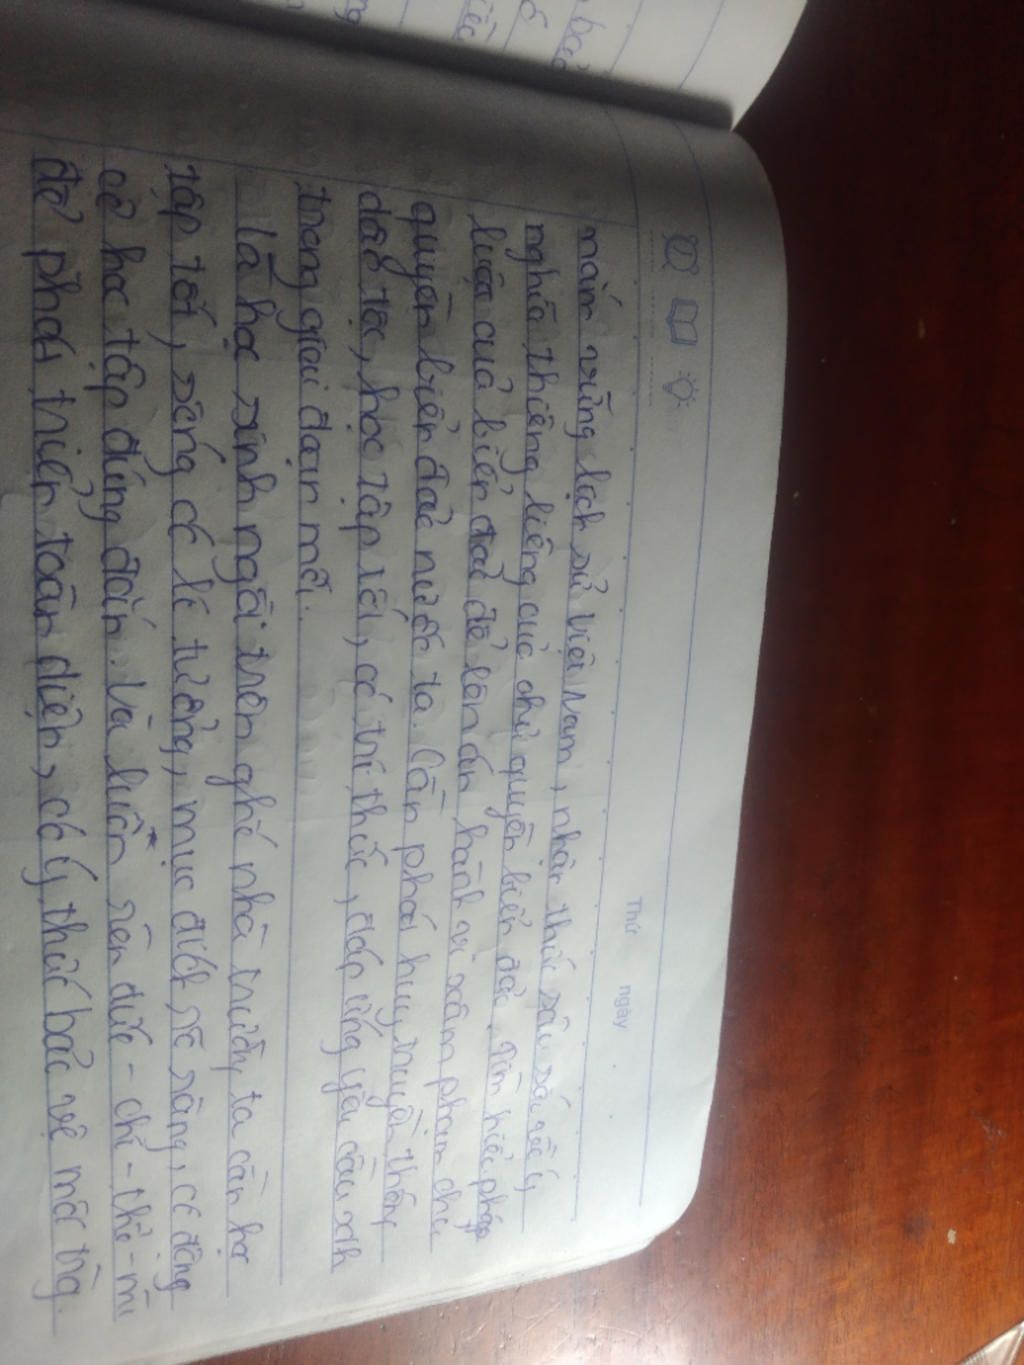 Thứ ngày
nắm vững lịch sử Việt Nam, nhận thức sâu sắc về ý
nghĩa thiêng liêng của chủ quyền biển đảo, tìm hiểu pháp
luật của biển đảo để lên án hành vi xâm phạm chủ
quyền biển đảo nước ta. Cần phát huy truyền thống
dân tộc, học tập tốt, có tri thức, đáp ứng yêu cầu xth
trong giai đoạn mới.
Là học sinh ngồi trên ghế nhà trường ta cần học
tập tốt, sống có lí tưởng, mục đích rõ ràng, có động
cơ học tập đúng đắn. Và luôn rèn đức - chí - thể - mĩ
để phát triển toàn diện, có ý thức bảo vệ môi trg.